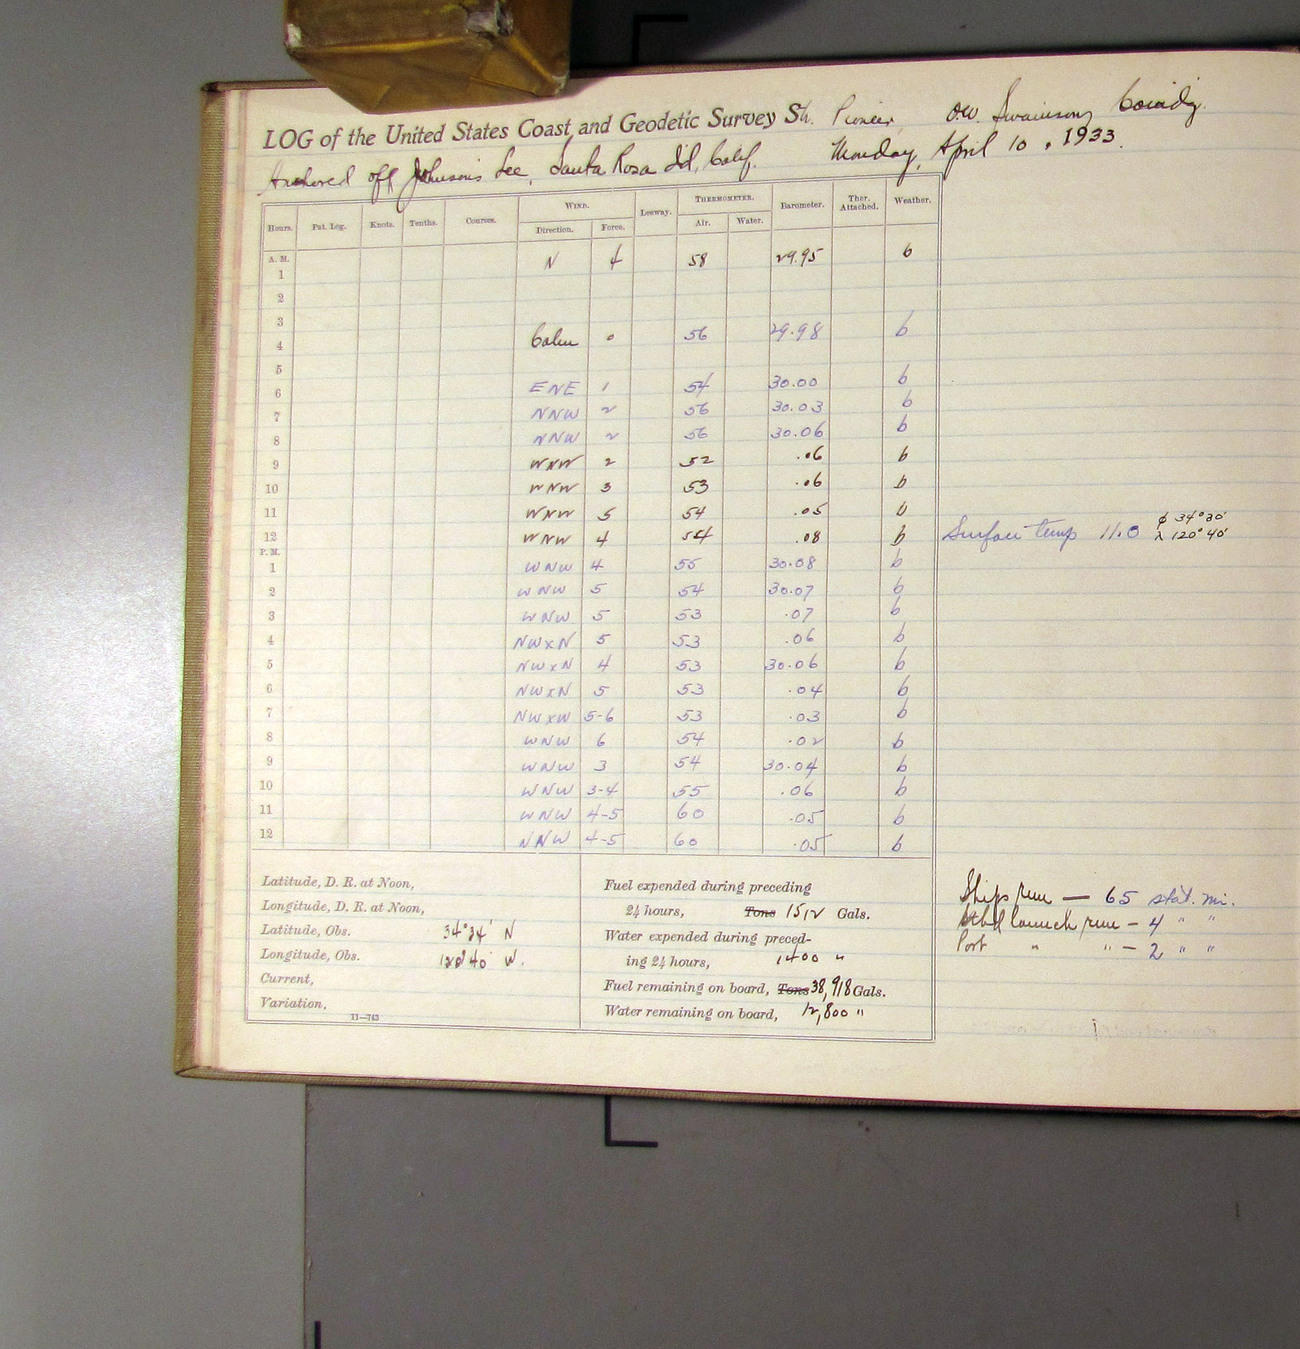 LOG of the United States Coast and Geodetic Survey Sh. Pioneer, O.W. Swainson, Comd'g.
Anchored off Johnsons Lee, Santa Rosa Id, Calif. Monday, April 10, 1933.
Hours. Pat. Log. Knots. Tenths. Courses. WIND. Leeway. THERMOMETER. Barometer. Ther. Attached. Weather.
Direction. Force. Air. Water.
A. M.
1 N 4 58 29.95 b
2
3
4 Calm 0 56 29.98 b
5
6 ENE 1 54 30.00 b
7 NNW 2 56 30.03 b
8 NNW 2 56 30.06 b
9 WNW 2 52 .06 b
10 WNW 3 53 .06 b
11 WNW 5 54 .05 b
12 WNW 4 54 .08 b Surface temp 11.0 φ 34°30' λ 120°40'
P. M.
1 WNW 4 55 30.08 b
2 WNW 5 54 30.07 b
3 WNW 5 53 .07 b
4 NWxN 5 53 .06 b
5 NWxN 4 53 30.06 b
6 NWxN 5 53 .04 b
7 NWxW 5-6 53 .03 b
8 WNW 6 54 .02 b
9 WNW 3 54 30.04 b
10 WNW 3-4 55 .06 b
11 WNW 4-5 60 .05 b
12 NNW 4-5 60 .05 b
Latitude, D. R. at Noon,
Longitude, D. R. at Noon,
Latitude, Obs. 34°34' N
Longitude, Obs. 120°40' W.
Current,
Variation,
11—743
Fuel expended during preceding
24 hours, Tons 1512 Gals.
Water expended during preced-
ing 24 hours, 1400 "
Fuel remaining on board, Tons 38,918 Gals.
Water remaining on board, 12,800 "
Ships run — 65 stat. mi.
Stbd launch run - 4 " "
Port " " - 2 " "